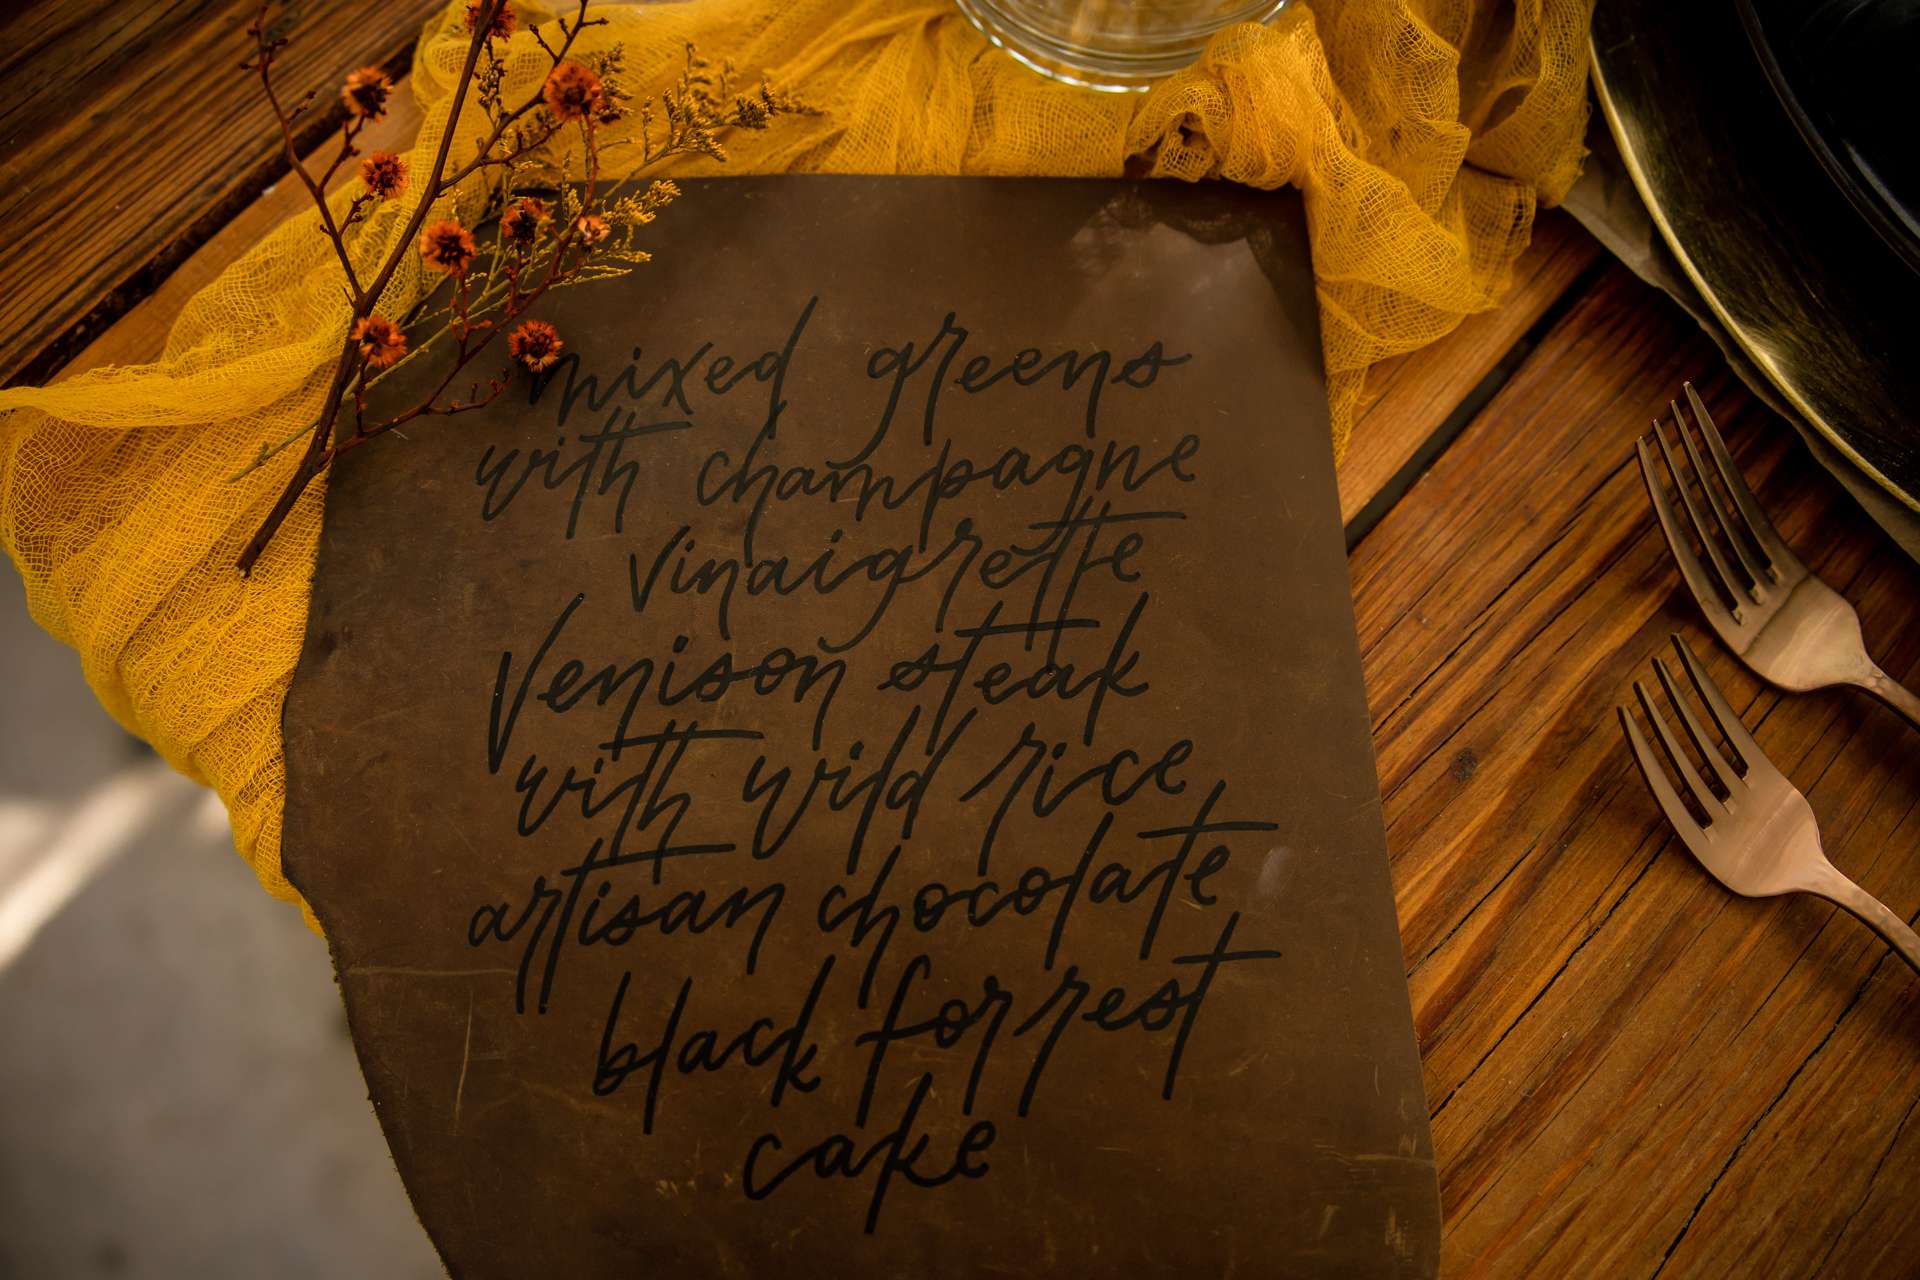 mixed greens
with champagne
vinaigrette
Venison steak
with wild rice
artisan chocolate
black forrest
cake